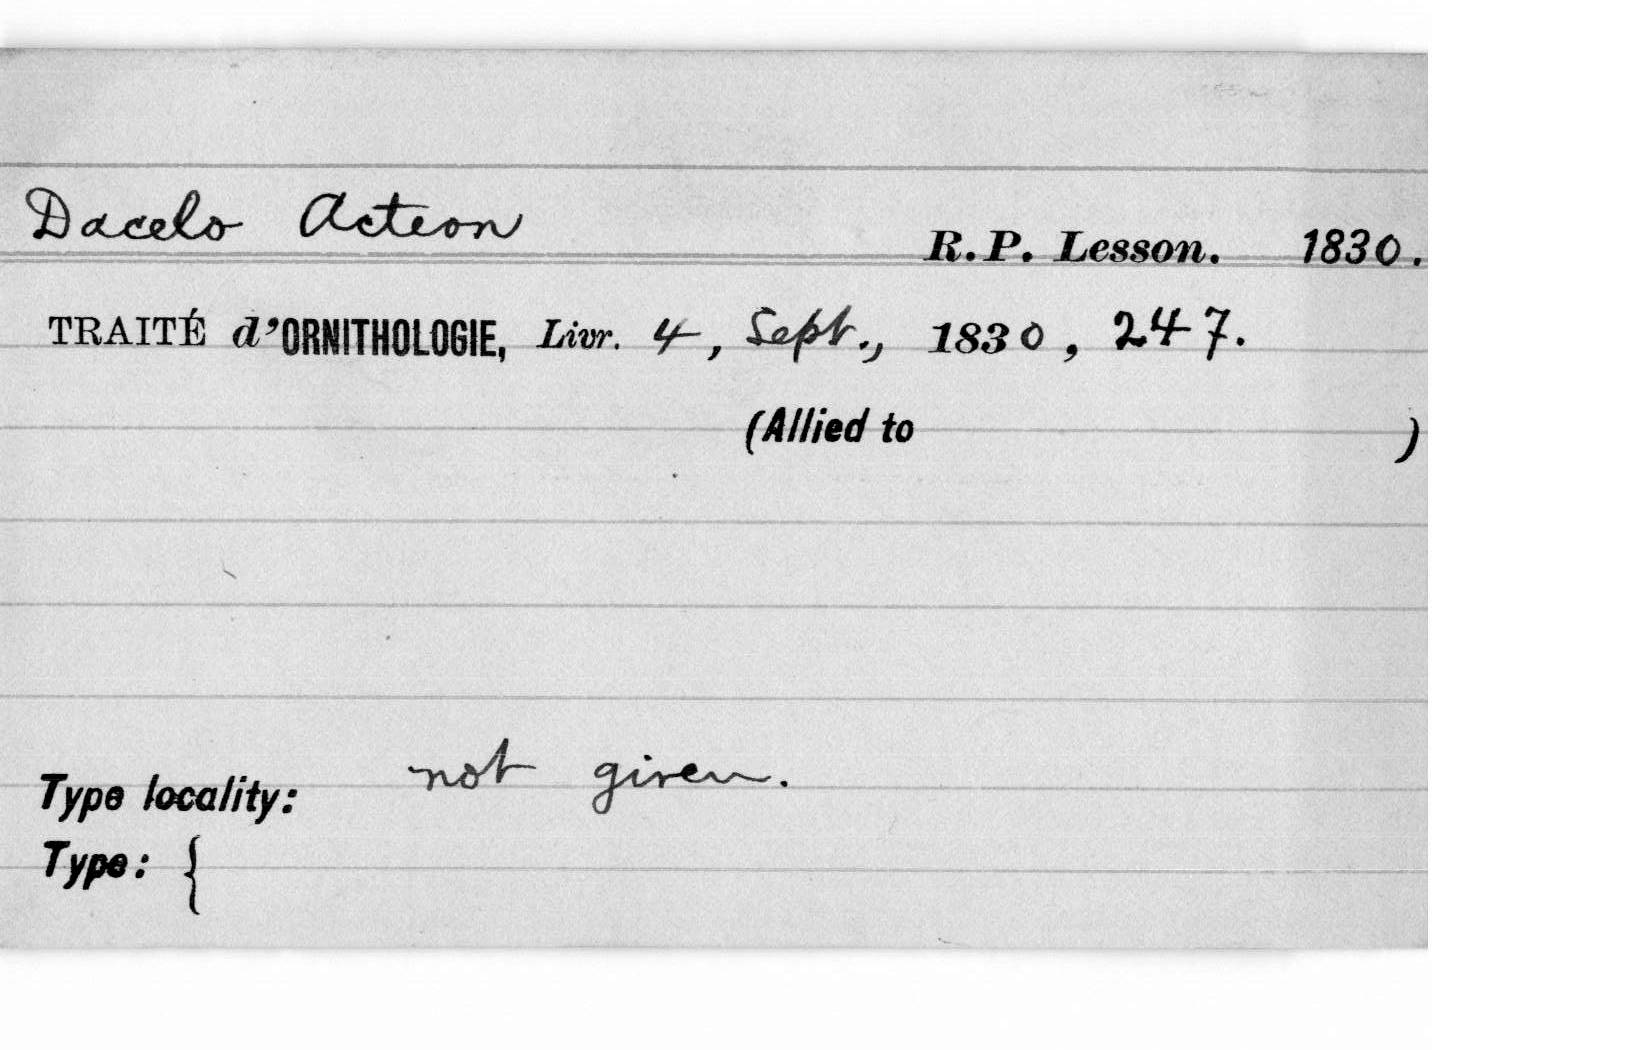 Dacelo Acteon
R.P. Lesson. 1830.
TRAITÉ d'ORNITHOLOGIE, Livr. 4, Sept., 1830, 247.
(Allied to )
not given.
Type locality:
Type: {